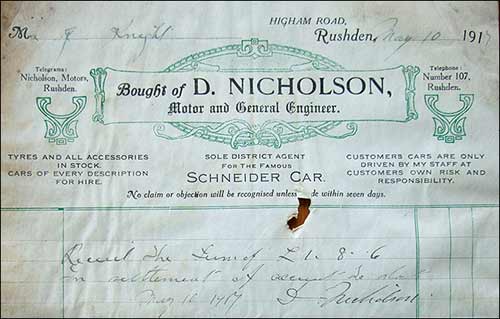 HIGHAM ROAD,
Mr F Knight
Rushden, May 10 1917
Telegrams:
Nicholson, Motors,
Rushden.
Bought of D. NICHOLSON,
Motor and General Engineer.
Telephone:
Number 107,
Rushden.
TYRES AND ALL ACCESSORIES
IN STOCK.
CARS OF EVERY DESCRIPTION
FOR HIRE.
SOLE DISTRICT AGENT
FOR THE FAMOUS
SCHNEIDER CAR.
CUSTOMERS CARS ARE ONLY
DRIVEN BY MY STAFF AT
CUSTOMERS OWN RISK AND
RESPONSIBILITY.
No claim or objection will be recognised unless within seven days.
Received the Sum of £1. 8. 6
in settlement of account
May 1917 D Nicholson